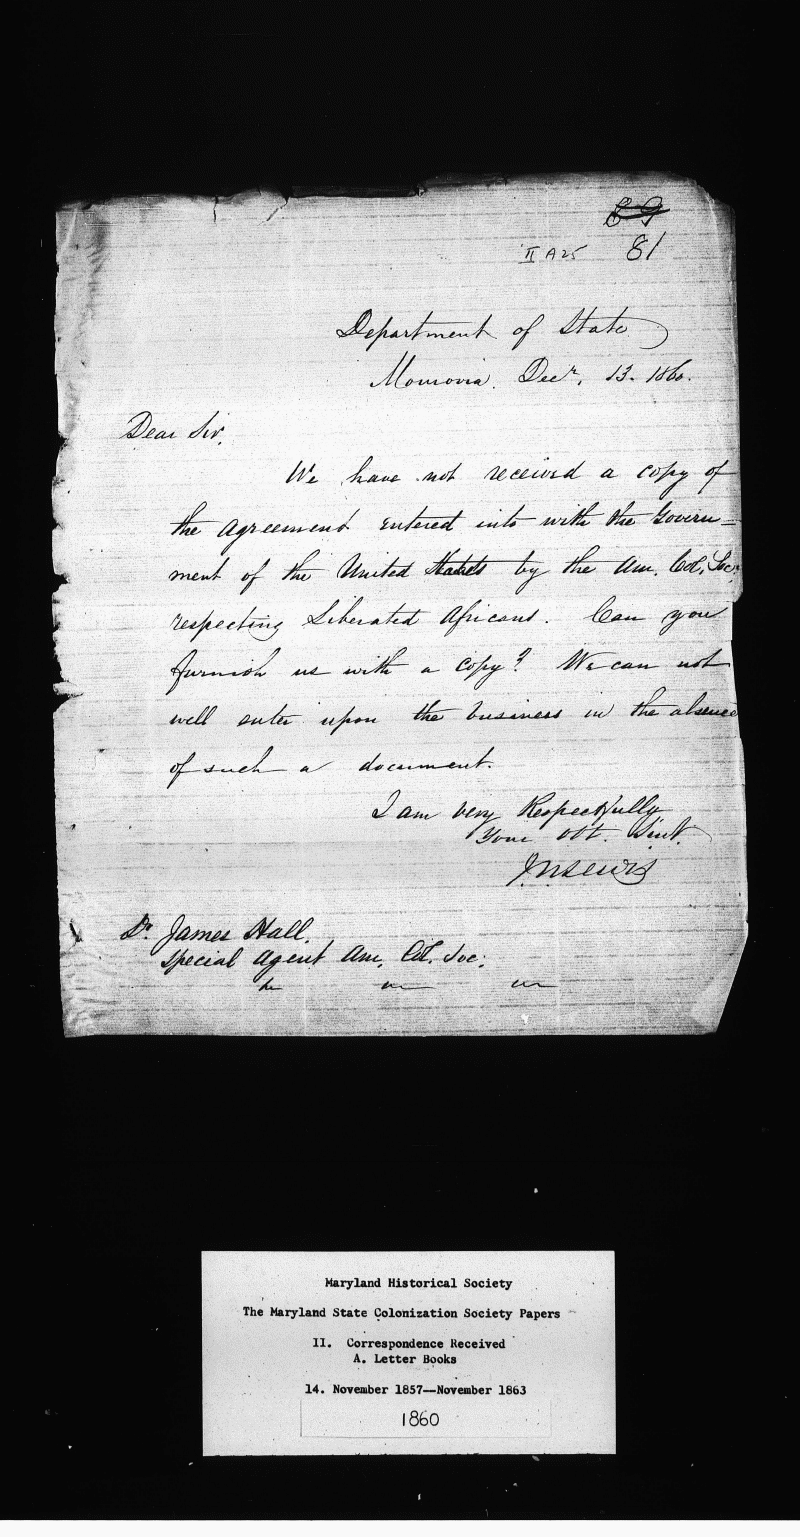 81
II A25
Department of State
Monrovia. Decr. 13. 1860.
Dear Sir,
We have not received a copy of
the agreement entered into with the Govern=
ment of the United States by the Am. Col. Soc.
respecting Liberated Africans. Can you
furnish us with a copy? We can not
well enter upon the business in the absence
of such a document.
I am very Respectfully
Your Obt. Servt.
J.N. Lewis
Dr. James Hall.
Special Agent Am. Col. Soc.
Maryland Historical Society
The Maryland State Colonization Society Papers
II. Correspondence Received
A. Letter Books
14. November 1857--November 1863
1860